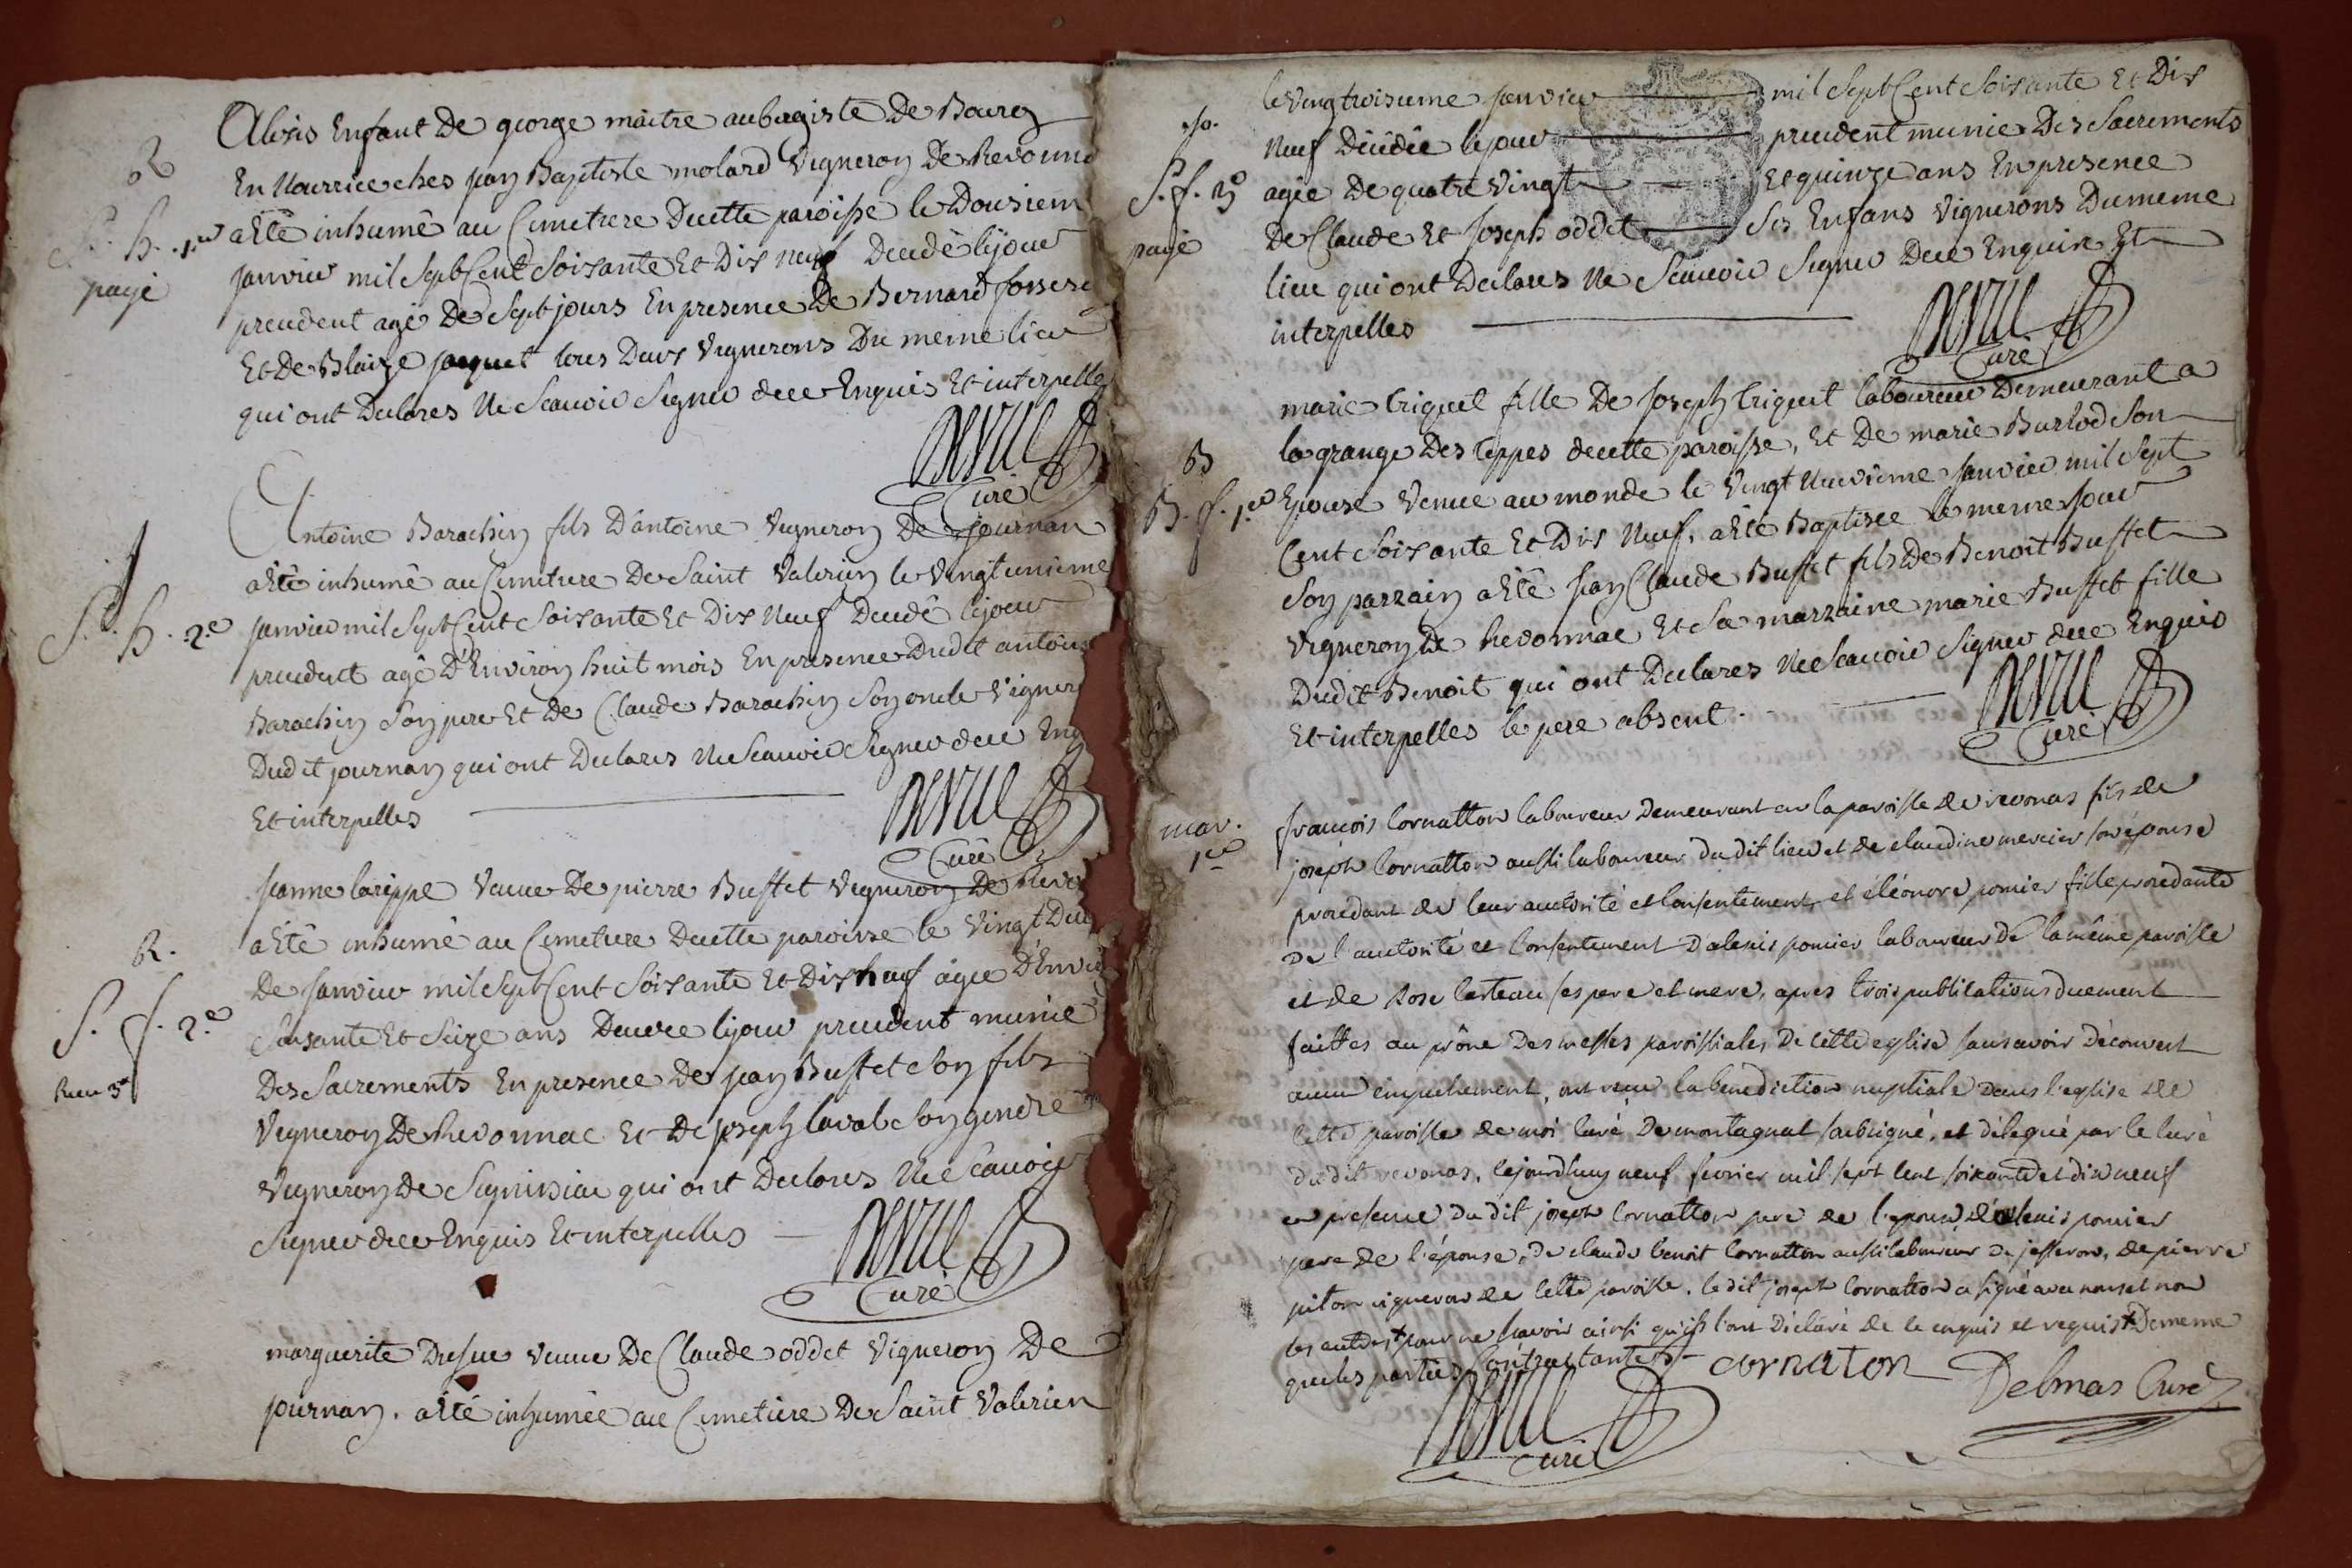 R
S. h. 1er
payé
Alexis Enfant De george maitre aubergiste De Bourg
En Nourrice ches jean Baptiste molard Vigneron De Revonna
a Eté inhumé au Cimetiere De cette paroisse le Dousiem
janvier mil Sept Cent Soisante Et Dix neuf Decedé le jour
precedent agé De Sept jours En presence De Bernard
Et De Blaize jacquet tous Deux Vignerons Du meme lieu
qui ont Declarés Ne Scavoir Signer de ce Enquis Et interpelles
Curé
J
S. h. 2e
Antoine Barachin fils D'antoine Vigneron De journan
a Eté inhumé au Cimetiere De Saint Valerien le Vingt unieme
janvier mil Sept Cent Soisante Et Dix Neuf Decedé le jour
precedent agé D'Environ huit mois En presence Dudit antoine
Barachin Son pere Et De Claude Barachin Son oncle Vigner
Dudit journan qui ont Declarés Ne Scavoir Signer de ce Enq
Et interpelles
Curé
R.
S. f. 2e
Jeanne lareppe Veuve De pierre Buffet Vigneron De Revo
a Eté inhumé au Cimetiere De cette paroisse le Vingt Deu
De janvier mil Sept Cent Soisante Et Dix neuf agée D'Envir
Soisante Et Seize ans Decedee le jour precedent munie
Des Sacrements En presence De jean Buffet Son fils
Vigneron De Revonnac Et De joseph laval Son gendre
Vigneron De qui ont Declarés Ne Scavoir
Signer de ce Enquis Et interpelles
Curé
marguerite Veuve De Claude oddet Vigneron De
journan. a Eté inhumée au Cimetiere De Saint Valerien
S. f. 3e
payé
le Vingtroisieme janvier mil Sept Cent Soisante Et Dix
Neuf Décédée le jour precedent munie Des Sacrements
agée De quatre Vingt Et quinze ans En presence
De Claude Et joseph oddet Ses Enfans Vignerons Du meme
lieu qui ont Declarés Ne Scavoir Signer De ce Enquis Et
interpelles
Curé
B
B. f. 1er
marie triquet fille De joseph triquet laboureur Demeurant a
la grange Des teppes de cette paroisse, Et De marie Burlod Son
Epouse Venue au monde le Vingt Neuvieme janvier mil Sept
Cent Soisante Et Dix Neuf, a Eté Baptisée le meme jour
Son parrain a Eté jean Claude Buffet fils De Benoit Buffet
Vigneron De Revonnac Et Sa marraine marie Buffet fille
Dudit Benoit qui ont Declarés Ne Scavoir Signer de ce Enquis
Et interpelles le pere absent.
Curé
mar.
1er
françois Cornatton laboureur demeurant en la paroisse de revonas fils de
joseph Cornatton aussi laboureur du dit lieu et de claudine mercier son épouse
procedant de leur autorité et consentement, et éléonore pomier fille procedante
de l'autorité et consentement d'alexis pomier laboureur de la même paroisse
et de Rose Carteau ses pere et mere, apres trois publications duement
faittes au prône des messes paroissiales de cette eglise sans avoir découvert
aucun empechement, ont recu la benediction nuptiale dans l'eglise de
cette paroisse de moi curé de montagnat soubsigné, et délegué par le curé
du dit revonas, le jourdhuy neuf fevrier mil sept cent soixante et dix neuf
en presence du dit joseph Cornatton pere de l'epoux d'alexis pomier
pere de l'épouse, de claude benoit Cornatton aussi laboureur de jasseron, de pierre
piton vigneron de cette paroisse. le dit joseph Cornatton a signé avec nous et non
les autres pour ne scavoir ainsi qu'ils l'ont déclaré de ce enquis et requis De meme
que les parties Contractantes
cornaton
Delmas Curé
Curé